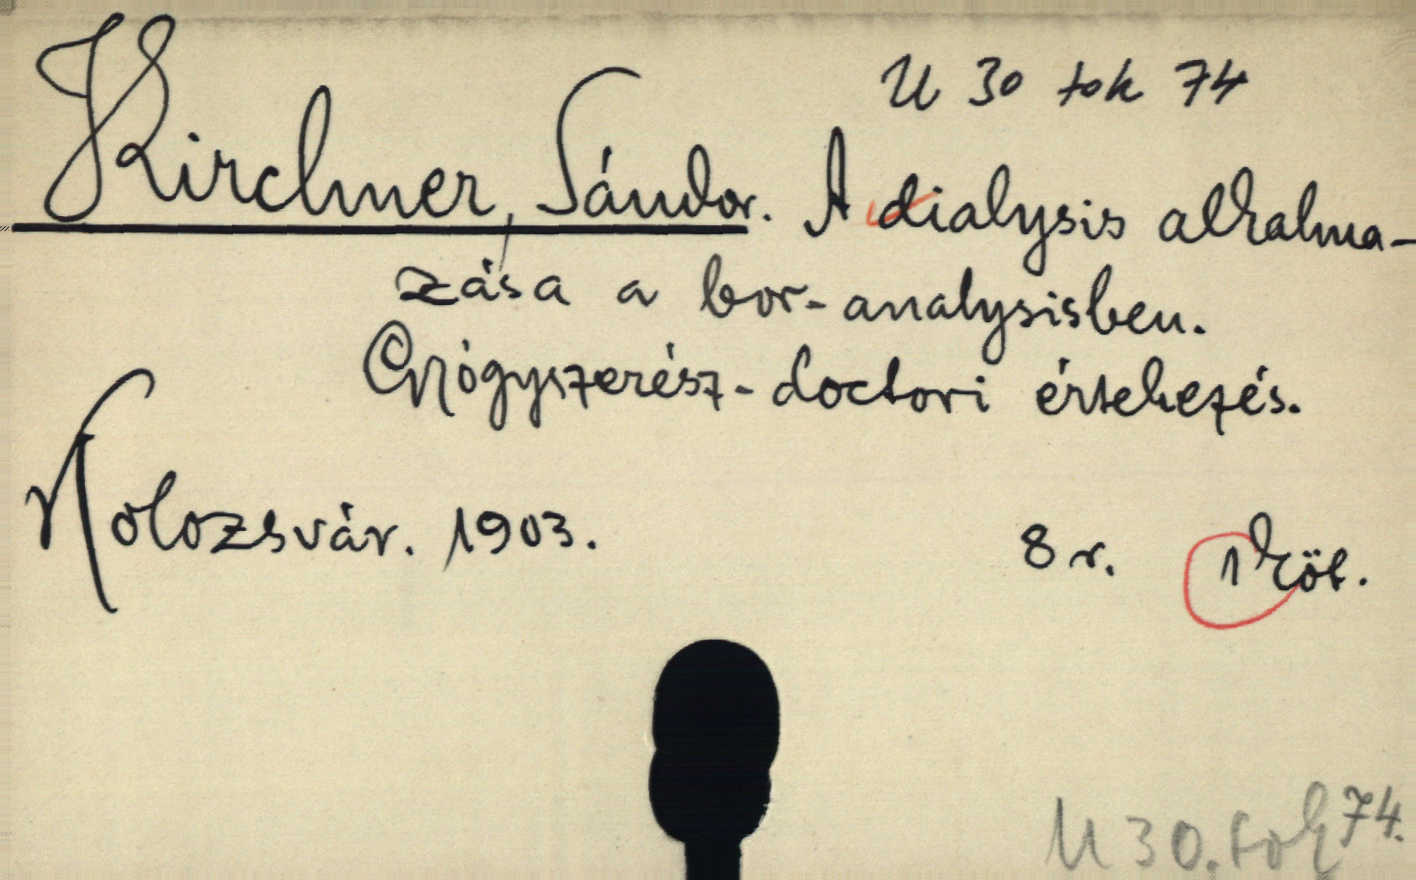 U 30 tok 74
Kirchner, Sándor. A dialysis alkalma-
zása a bor-analysisben.
Gyógyszerész-doctori értekezés.
Kolozsvár. 1903. 8 r. 1 köt.
U 30. tok 74.